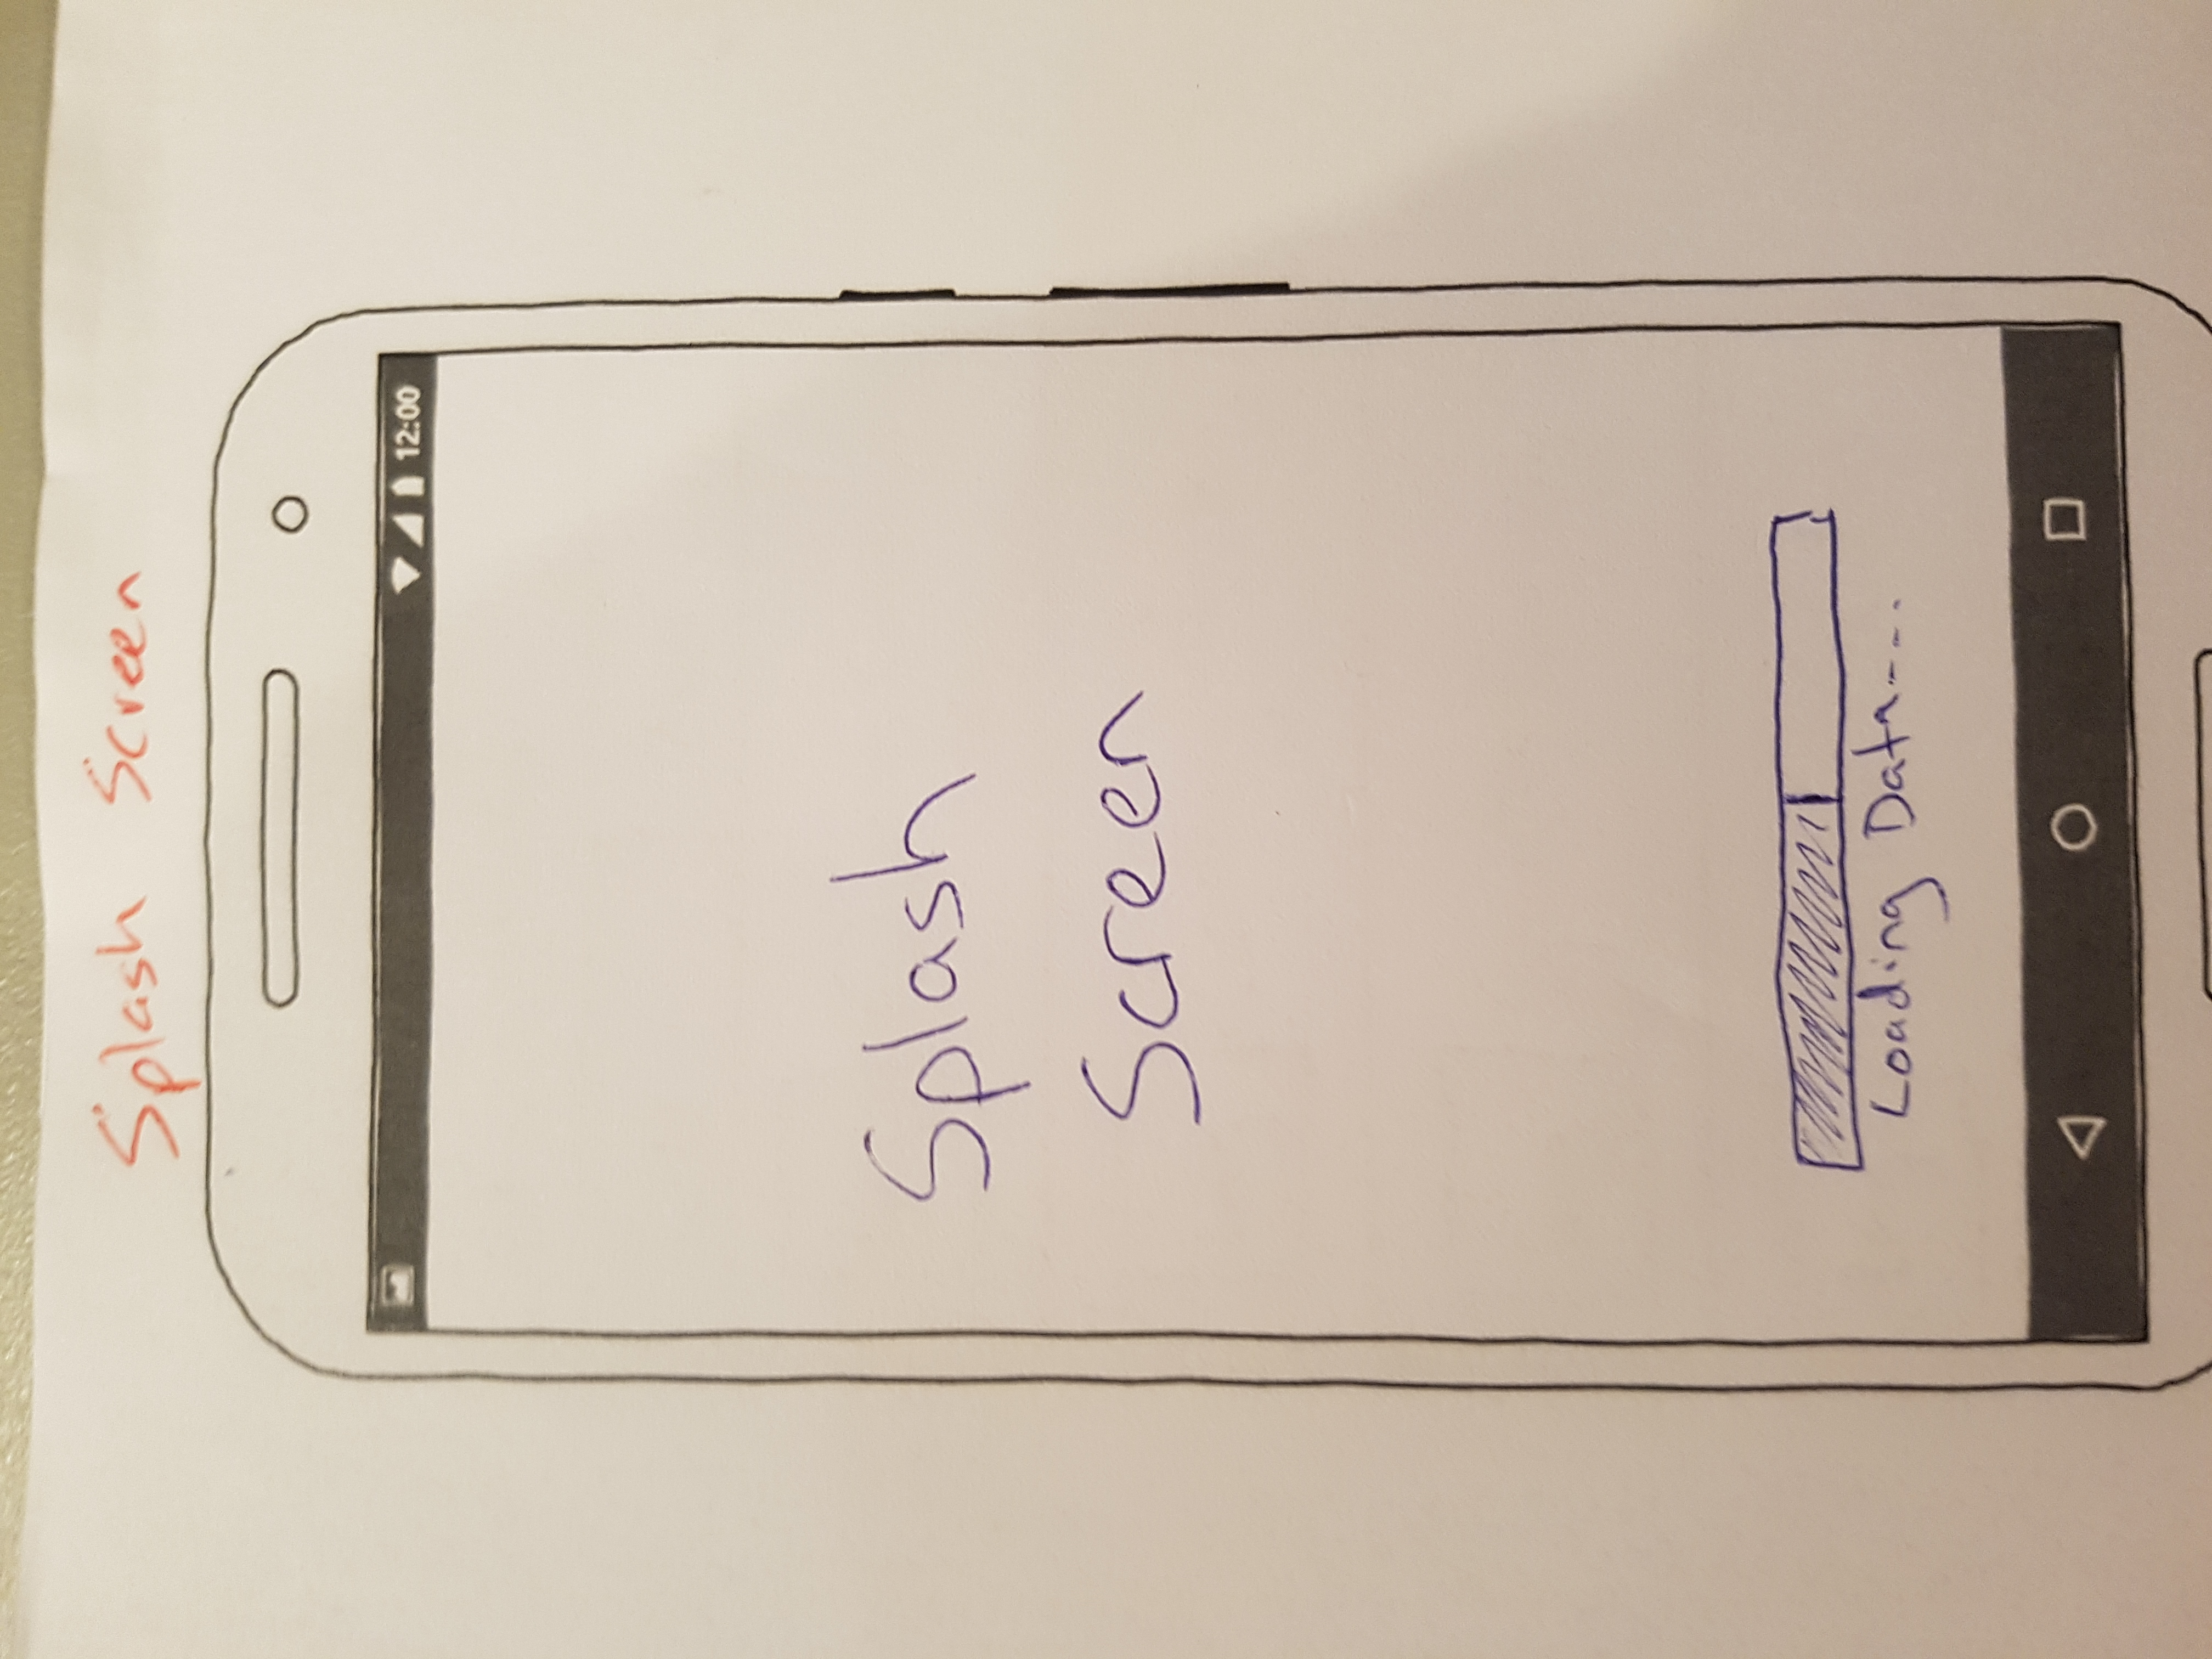 Splash Screen
12:00
Splash
Screen
Loading Data....